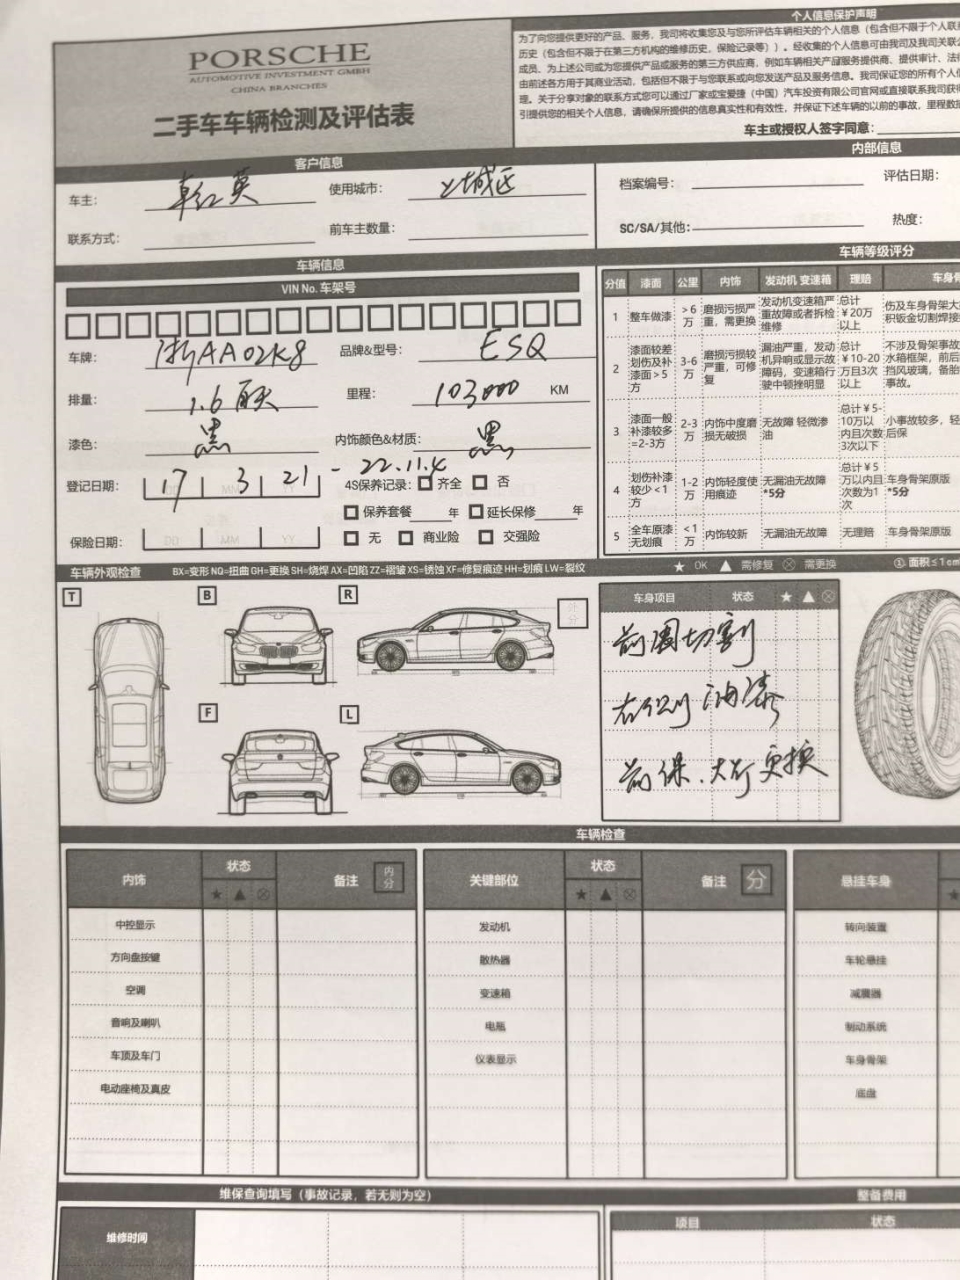 PORSCHE
AUTOMOTIVE INVESTMENT GMBH
CHINA BRANCHES
二手车车辆检测及评估表
个人信息保护声明
为了向您提供更好的产品、服务，我司将收集您及与您所评估车辆相关的个人信息（包含但不限于个人联
历史（包含但不限于在第三方机构的维修历史，保险记录等））。经收集的个人信息可由我司及我司关联公
成员、为上述公司或为您提供产品或服务的第三方供应商，例如车辆相关产品服务提供商、提供审计、法
由前述各方用于其商业活动，包括但不限于与您联系或向您发送产品及服务信息。我司保证您的所有个人信
理。关于分享对象的联系方式您可以通过厂家或宝爱捷（中国）汽车投资有限公司官网或直接联系我司获得
引提供您的相关个人信息，请确保所提供的信息真实性和有效性，并保证下述车辆的以前的事故，里程数据
车主或授权人签字同意：
客户信息
内部信息
车主：
红英
使用城市：
上城区
联系方式：
前车主数量：
档案编号：
评估日期：
SC/SA/其他：
热度：
车辆信息
VIN No. 车架号
车牌：
浙AA02K8
品牌&型号：
ESQ
排量：
1.6
里程：
103000
KM
漆色：
黑
内饰颜色&材质：
黑
登记日期：
17 3 21 - 22.11.4
4S保养记录： 齐全 否
保养套餐 年 延长保修 年
保险日期：
DD MM YY
无 商业险 交强险
车辆等级评分
分值 漆面 公里 内饰 发动机 变速箱 理赔 车身骨
1 整车做漆 >6万 磨损污损严重，需更换 发动机变速箱严重故障或者拆检维修 总计￥20万以上 伤及车身骨架大积钣金切割焊接
2 漆面较差划伤及补漆面>5方 3-6万 磨损污损较严重，可修复 漏油严重，发动机异响或显示故障码，变速箱行驶中顿挫明显 总计￥10-20万且3次以上 不涉及骨架事故水箱框架，前后挡风玻璃，备胎事故。
3 漆面一般补漆较多=2-3方 2-3万 内饰中度磨损无破损 无故障 轻微渗油 总计￥5-10万以内且次数3次以下 小事故较多，轻后保
4 划伤补漆较少<1方 1-2万 内饰轻度使用痕迹 无漏油无故障*5分 总计￥5万以内且次数为1次 车身骨架原版*5分
5 全车原漆无划痕 <1万 内饰较新 无漏油无故障 无理赔 车身骨架原版
车辆外观检查
BX=变形 NQ=扭曲 GH=更换 SH=烧焊 AX=凹陷 ZZ=褶皱 XS=锈蚀 XF=修复痕迹 HH=划痕 LW=裂纹
★ OK ▲ 需修复 ⊗ 需更换
①. 面积≤1cm
T
B
R
外分
F
L
车身项目 状态 ★ ▲ ⊗
前围切割
右侧油漆
前保.大灯更换
车辆检查
内饰 状态 ★ ▲ ⊗ 备注 内分
中控显示
方向盘按键
空调
音响及喇叭
车顶及车门
电动座椅及真皮
关键部位 状态 ★ ▲ ⊗ 备注 分
发动机
散热器
变速箱
电瓶
仪表显示
悬挂车身 ★
转向装置
车轮悬挂
减震器
制动系统
车身骨架
底盘
维保查询填写（事故记录，若无则为空）
维修时间
整备费用
项目 状态